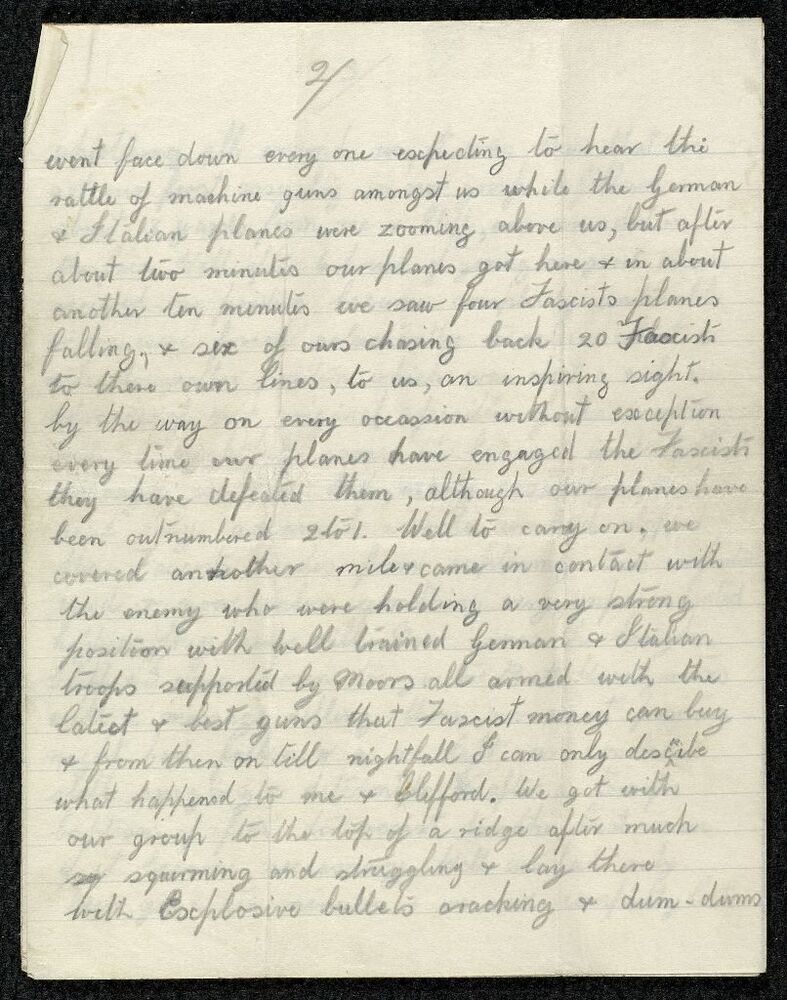 2/
went face down every one expecting to hear the
rattle of machine guns amongst us while the German
& Italian planes were zooming above us, but after
about two minutes our planes got here & in about
another ten minutes we saw four Fascists planes
falling, & six of ours chasing back 20 Fascists
to there own lines, to us, an inspiring sight.
by the way on every occassion without exception
every time our planes have engaged the Fascists
they have defeated them, although our planes have
been outnumbered 2 to 1. Well to carry on, we
covered another mile & came in contact with
the enemy who were holding a very strong
position with well trained German & Italian
troops supported by Moors all armed with the
latest & best guns that Fascist money can buy
& from then on till nightfall I can only describe
what happened to me & Clifford. We got with
our group to the top of a ridge after much
squirming and struggling & lay there
with Explosive bullets cracking & dum-dums